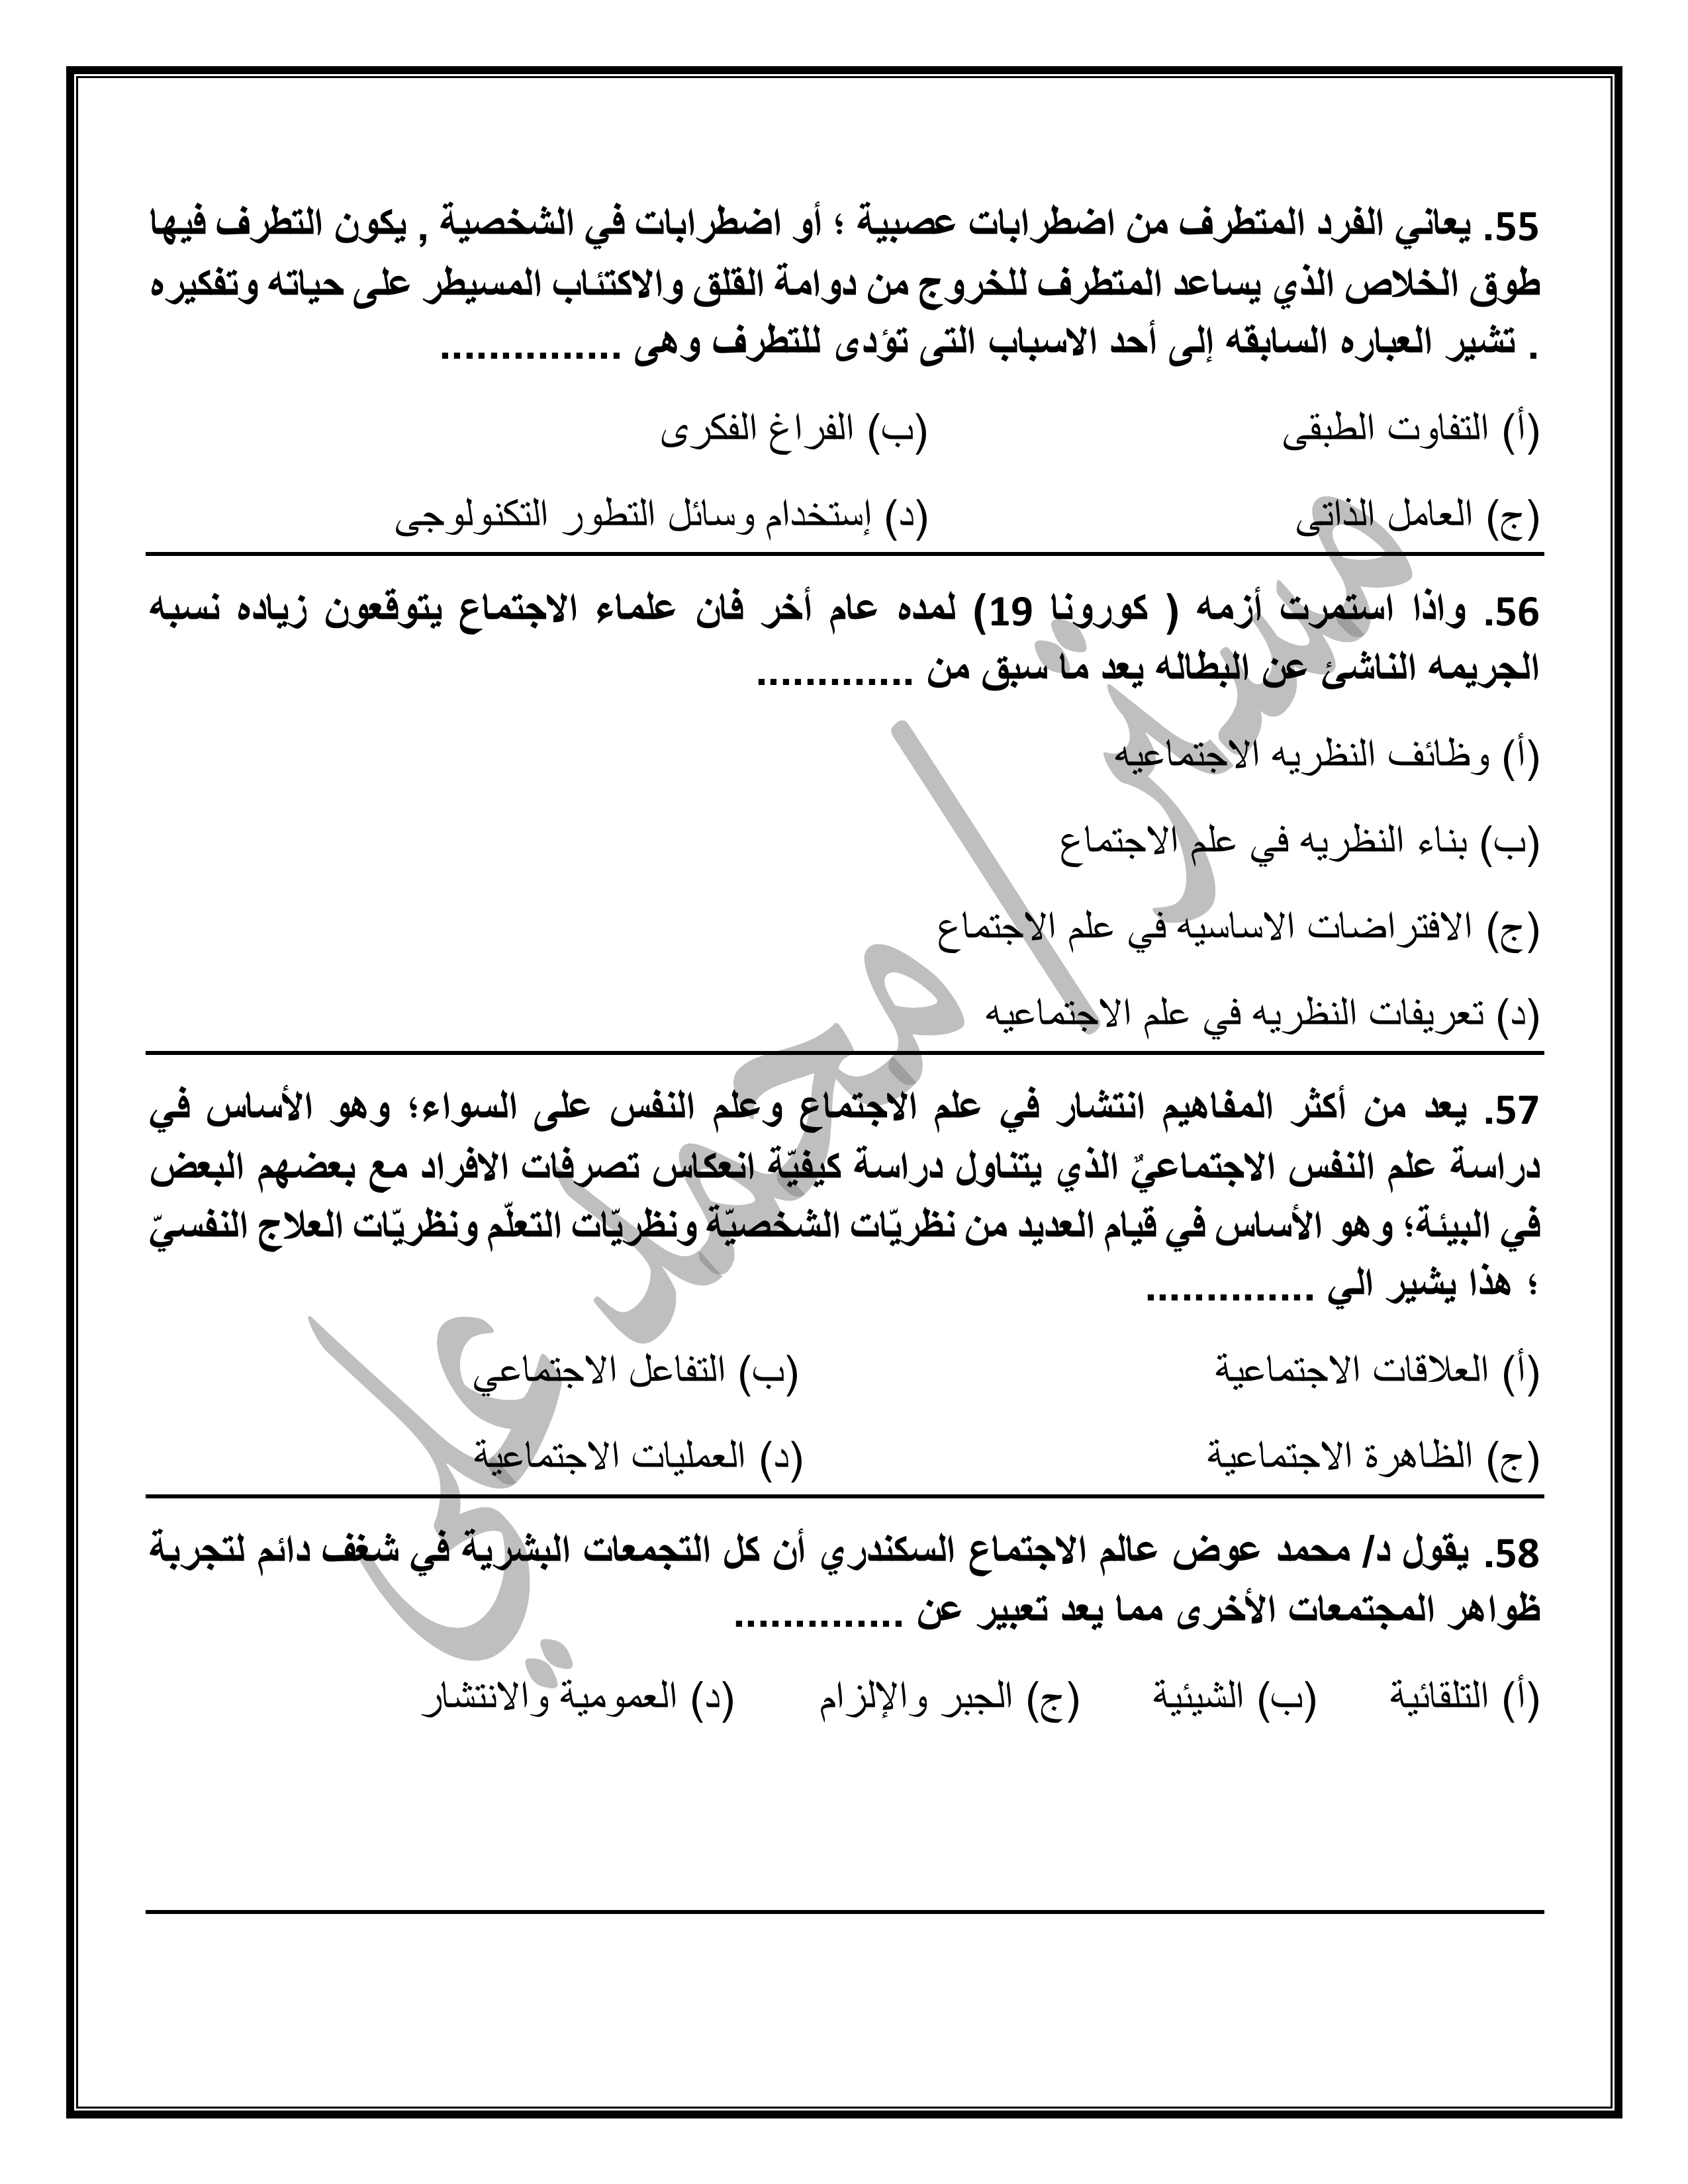 55. يعاني الفرد المتطرف من اضطرابات عصبية ؛ أو اضطرابات في الشخصية , يكون التطرف فيها
طوق الخلاص الذي يساعد المتطرف للخروج من دوامة القلق والاكتئاب المسيطر على حياته وتفكيره
. تشير العباره السابقه إلى أحد الاسباب التى تؤدى للتطرف وهى ...............
(أ) التفاوت الطبقى (ب) الفراغ الفكرى
(ج) العامل الذاتى (د) إستخدام وسائل التطور التكنولوجى
56. واذا استمرت أزمه ( كورونا 19) لمده عام أخر فان علماء الاجتماع يتوقعون زياده نسبه
الجريمه الناشئ عن البطاله يعد ما سبق من .............
(أ) وظائف النظريه الاجتماعيه
(ب) بناء النظريه في علم الاجتماع
(ج) الافتراضات الاساسيه في علم الاجتماع
(د) تعريفات النظريه في علم الاجتماعيه
57. يعد من أكثر المفاهيم انتشار في علم الاجتماع وعلم النفس على السواء؛ وهو الأساس في
دراسة علم النفس الاجتماعيٌ الذي يتناول دراسة كيفيّة انعكاس تصرفات الافراد مع بعضهم البعض
في البيئة؛ وهو الأساس في قيام العديد من نظريّات الشخصيّة ونظريّات التعلّم ونظريّات العلاج النفسيّ
؛ هذا يشير الي ..............
(أ) العلاقات الاجتماعية (ب) التفاعل الاجتماعي
(ج) الظاهرة الاجتماعية (د) العمليات الاجتماعية
58. يقول د/ محمد عوض عالم الاجتماع السكندري أن كل التجمعات البشرية في شغف دائم لتجربة
ظواهر المجتمعات الأخرى مما يعد تعبير عن ..............
(أ) التلقائية (ب) الشيئية (ج) الجبر والإلزام (د) العمومية والانتشار
مستر/محمد علي